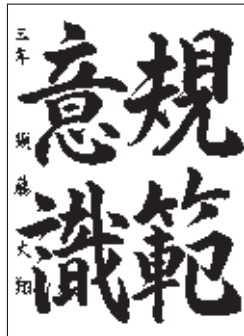 規範
意識
三年 藤大翔